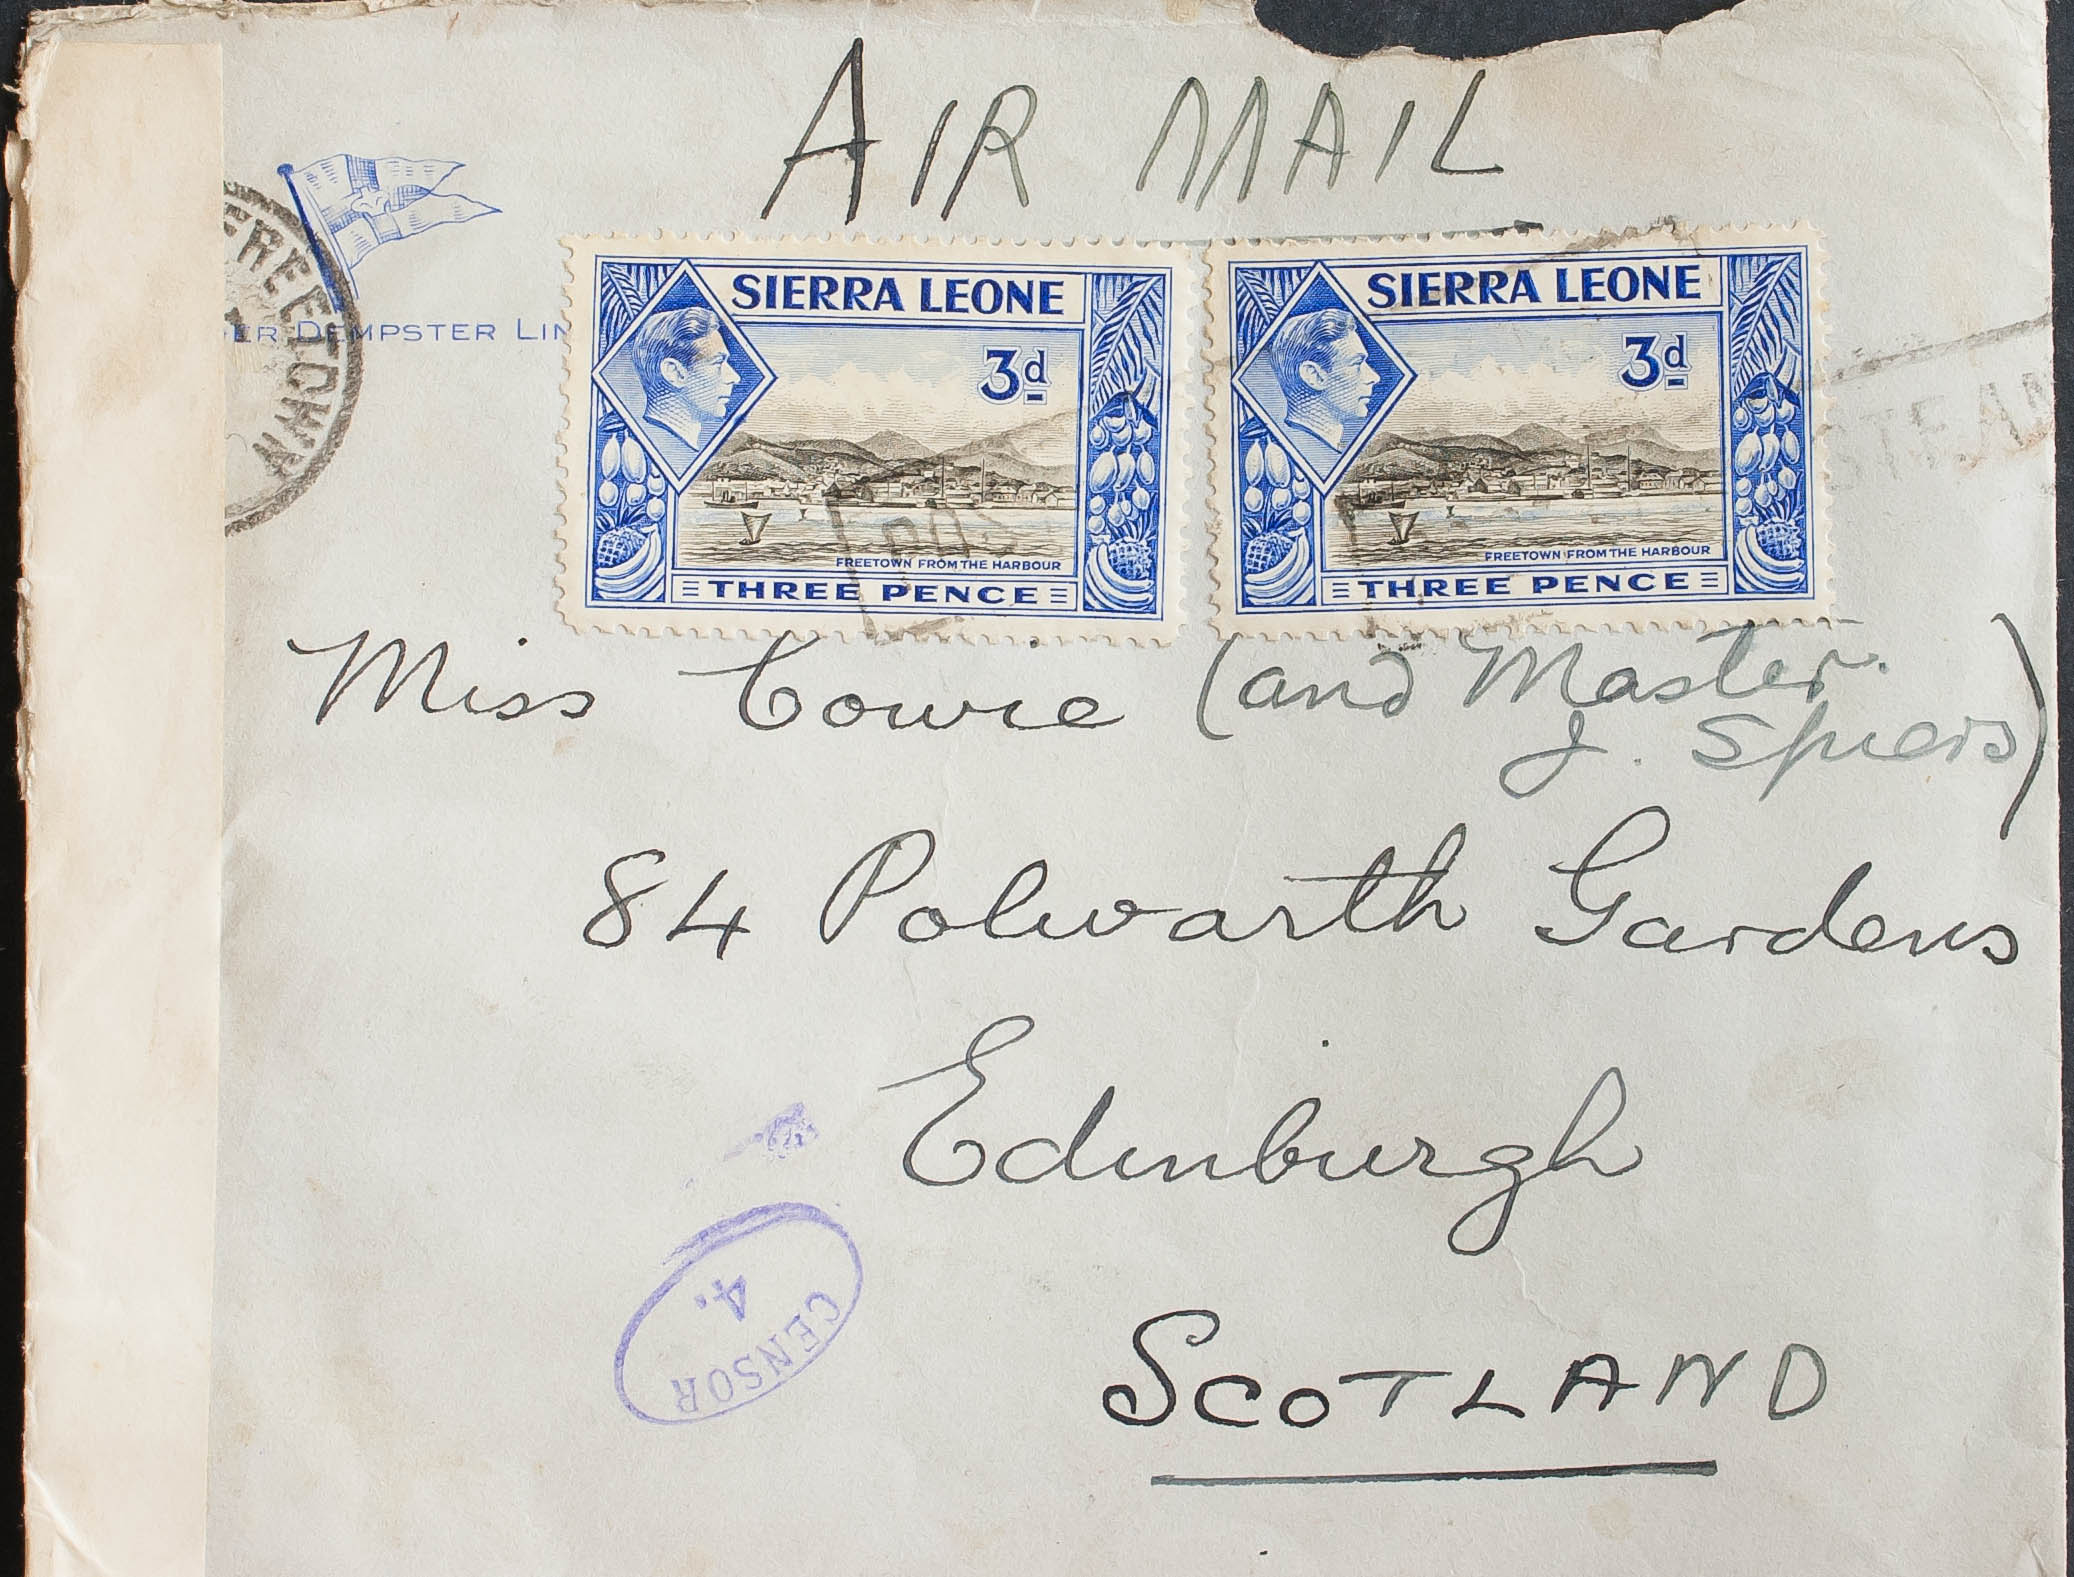 AIR MAIL
FREETOWN
DER DEMPSTER LIN
SIERRA LEONE
3d
FREETOWN FROM THE HARBOUR
THREE PENCE
SIERRA LEONE
3d
FREETOWN FROM THE HARBOUR
THREE PENCE
Miss Cowie (and Master
J. Spiers)
84 Polwarth Gardens
Edinburgh
SCOTLAND
CENSOR
4.